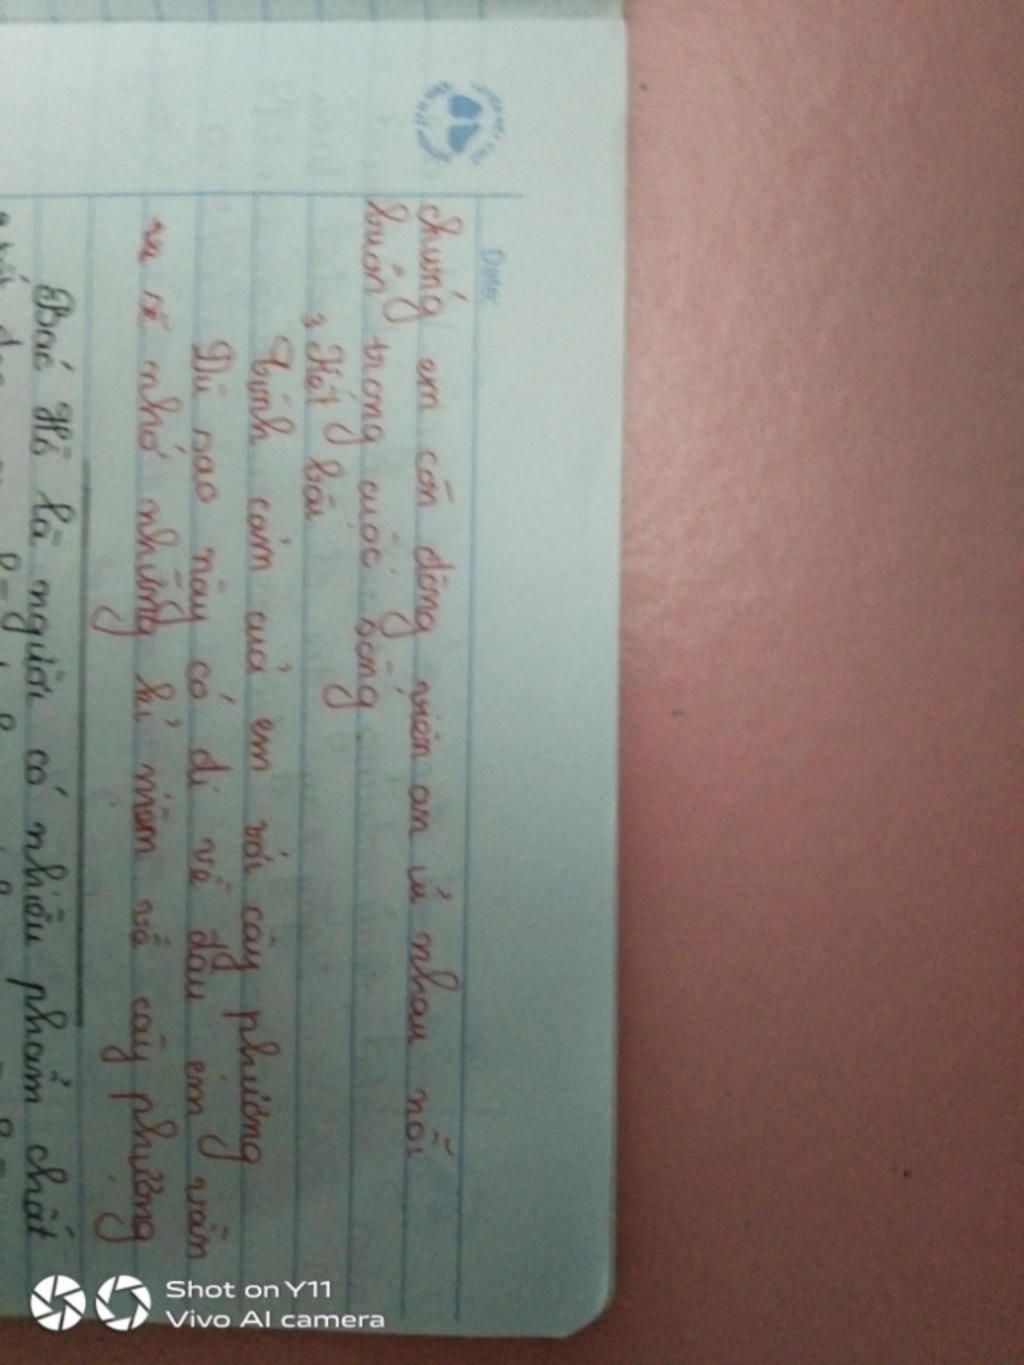 Date:
chúng em còn động viên an ủi nhau nỗi
buồn trong cuộc sống.
3, Kết bài
Tình cảm của em với cây phượng
Dù sao này có đi về đâu em vẫn
sẽ nhớ những kỉ niệm về cây phượng
Bác Hồ là người có nhiều phẩm chất
Shot on Y11
Vivo AI camera